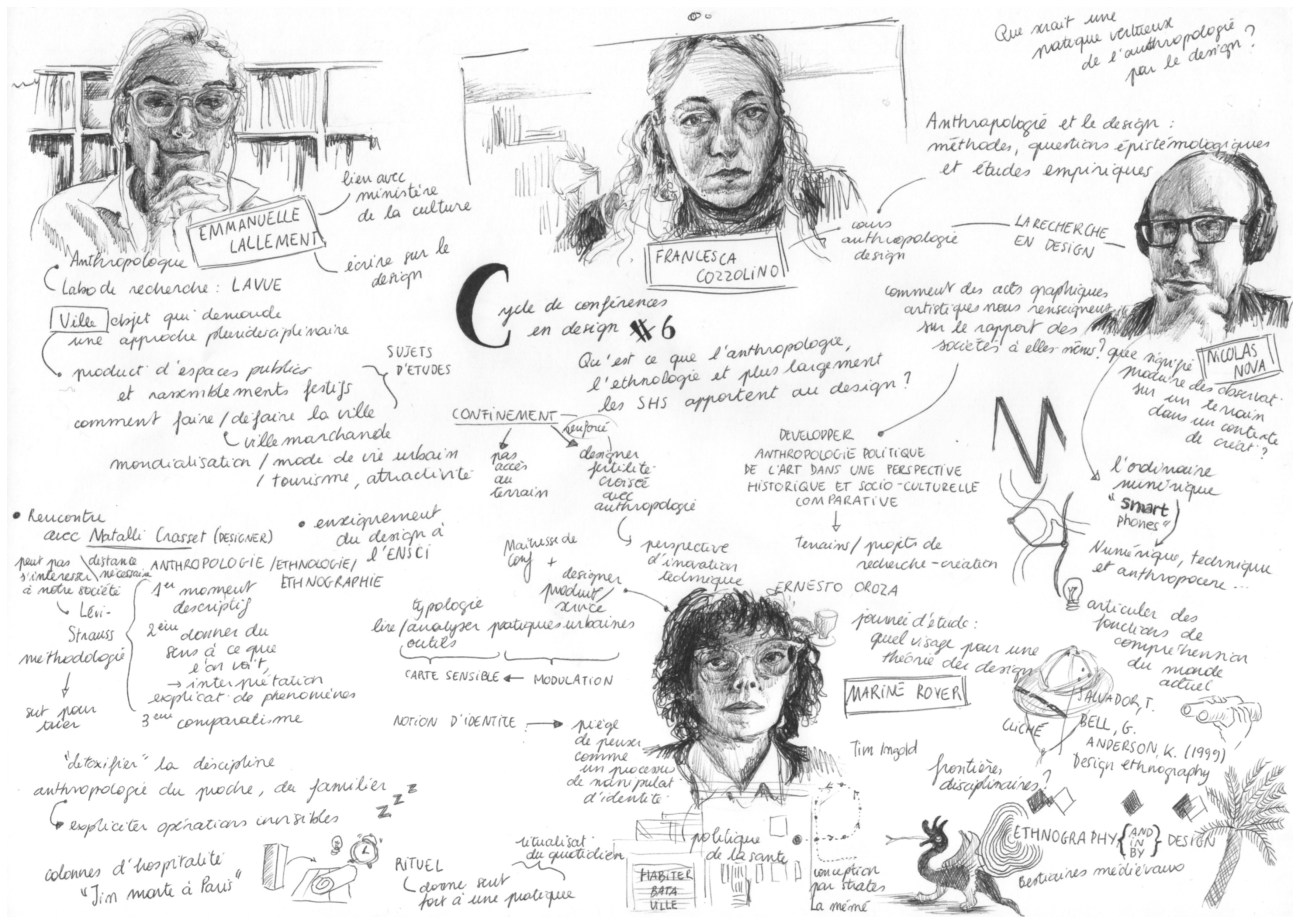 Que srait une
pratique vertueux
de l'anthropologie
par le design ?
Anthropologie et le design :
méthodes, questions épistémologiques
et études empiriques
lien avec
ministère
de la culture
EMMANUELLE
LALLEMENT
écrire sur le
design
Anthropologue
labo de recherche : LAVUE
Ville objet qui demande
une approche pluridisciplinaire
product° d'espaces publics
et rassemblements festifs
SUJETS
D'ETUDES
comment faire / défaire la ville
ville marchande
mondialisation / mode de vie urbain
/ tourisme, attractivité
FRANCESCA
COZZOLINO
cours
anthropologie
design
LA RECHERCHE
EN DESIGN
NICOLAS
NOVA
Cycle de conférences
en design #6
Qu'est ce que l'anthropologie,
l'ethnologie et plus largement
les SHS apportent au design ?
comment des acts graphiques
artistiques nous renseignent
sur le rapport des
sociétés à elles mêmes ?
que signifie
produire des observat°
sur un terrain
dans un contexte
de créat° ?
CONFINEMENT
renforcé
pas
accès
au
terrain
designer
fertilité
croisée
avec
anthropologie
perspective
d'inovation
technique
DEVELOPPER
ANTHROPOLOGIE POLITIQUE
DE L'ART DANS UNE PERSPECTIVE
HISTORIQUE ET SOCIO-CULTURELLE
COMPARATIVE
terrains / projets de
recherche-création
ERNESTO OROZA
l'ordinaire
numérique
"smart
phones"
Numérique, technique
et anthropocène ...
articuler des
fonctions de
compréhension
du monde
actuel
Rencontre
avec Natalli Crasset (DESIGNER)
enseignement
du design à
l'ENSCI
peut pas
s'intéresser
à notre société
distance
nécessaire
ANTHROPOLOGIE / ETHNOLOGIE /
ETHNOGRAPHIE
Lévi-
Strauss
méthodologie
sert pour
1er moment
descriptif
2ème donner du
sens à ce que
l'on voit,
→ interprétation
explicat° de phénomènes
3ème comparatisme
Maîtresse de
conf +
designer
produit /
service
typologie
lire / analyser pratiques urbaines
outils
CARTE SENSIBLE ← MODULATION
NOTION D'IDENTITE
piège
de penser
comme
un processus
de manipulat°
d'identité
journée d'étude :
quel visage pour une
théorie des designs
MARINE ROYER
Tim Ingold
CLICHÉ
SALVADOR, T.
BELL, G.
ANDERSON, K. (1999)
Design ethnography
frontières
disciplinaires ?
ETHNOGRAPHY { AND IN BY } DESIGN
Bestiaires médiévaux
"détoxifier" la discipline
anthropologie du proche, du familier
expliciter opérations invisibles
z z z
colonnes d'hospitalité
"Jim monte à Paris"
RITUEL
donne sens
fort à une pratique
ritualisat°
du quotidien
HABITER
BATA
VILLE
politique
de la santé
conception
par strates
la mémé